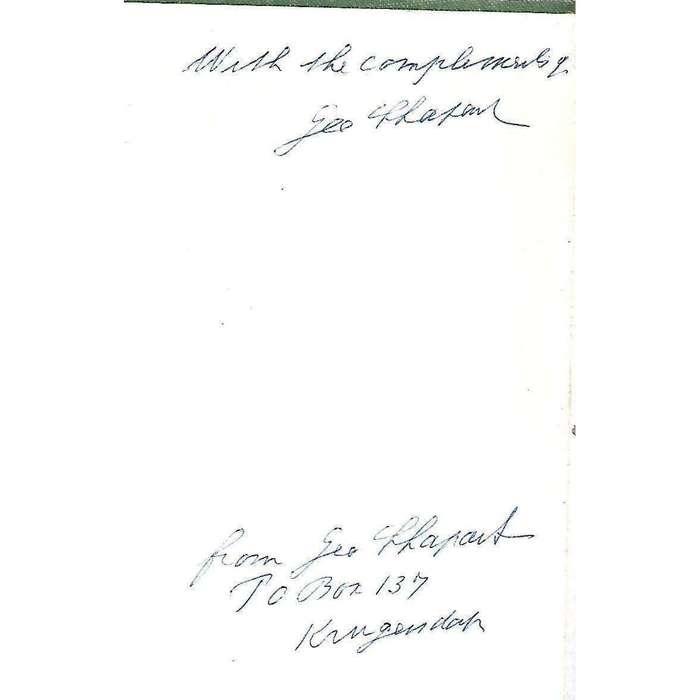 With the compliments of
Geo
from Geo
PO Box 137
Krugersdorp